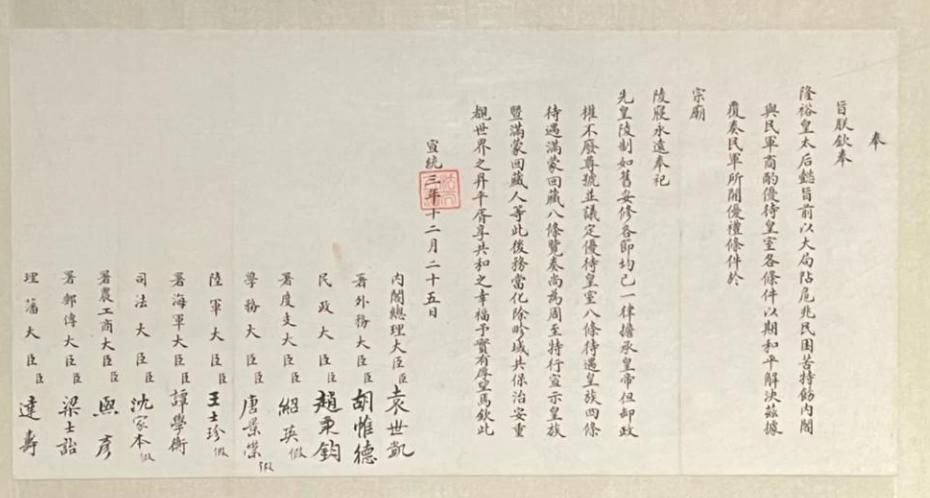 奉
旨朕欽奉
隆裕皇太后懿旨前以大局阽危兆民困苦特飭內閣
與民軍商酌優待皇室各條件以期和平解決茲據
覆奏民軍所開優禮條件於
宗廟
陵寢永遠奉祀
先皇陵制如舊妥修各節均已一律擔承皇帝但卸政
權不廢尊號並議定優待皇室八條待遇皇族四條
待遇滿蒙回藏八條覽奏尚為周至特行宣示皇族
暨滿蒙回藏人等此後務當化除畛域共保治安重
覩世界之昇平胥享共和之幸福予實有厚望焉欽此
宣統三年十二月二十五日
內閣總理大臣臣袁世凱
署外務大臣臣胡惟德
民政大臣臣趙秉鈞
署度支大臣臣紹英假
學務大臣臣唐景崇假
陸軍大臣臣王士珍假
署海軍大臣臣譚學衡
司法大臣臣沈家本假
署農工商大臣臣熙彥
署郵傳大臣臣梁士詒
理藩大臣臣達壽